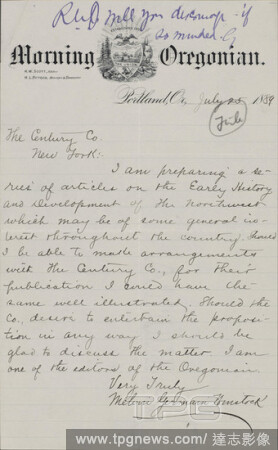 R.U.J. will you
so minded. G
Morning Oregonian.
H.W. SCOTT, Editor.
Portland, Or., July 20 1889
File
The Century Co.
New York:
I am preparing a se-
ries of articles on the Early History
and Development of the Northwest
which may be of some general in-
terest throughout the country. Should
I be able to make arrangements
with the Century Co., for their
publication I could have the
same well illustrated. Should the
Co., desire to entertain the proposi-
tion in any way I should be
glad to discuss the matter. I am
one of the editors of the Oregonian
Very Truly
TPG
www.tpgnews.com / 達志影像